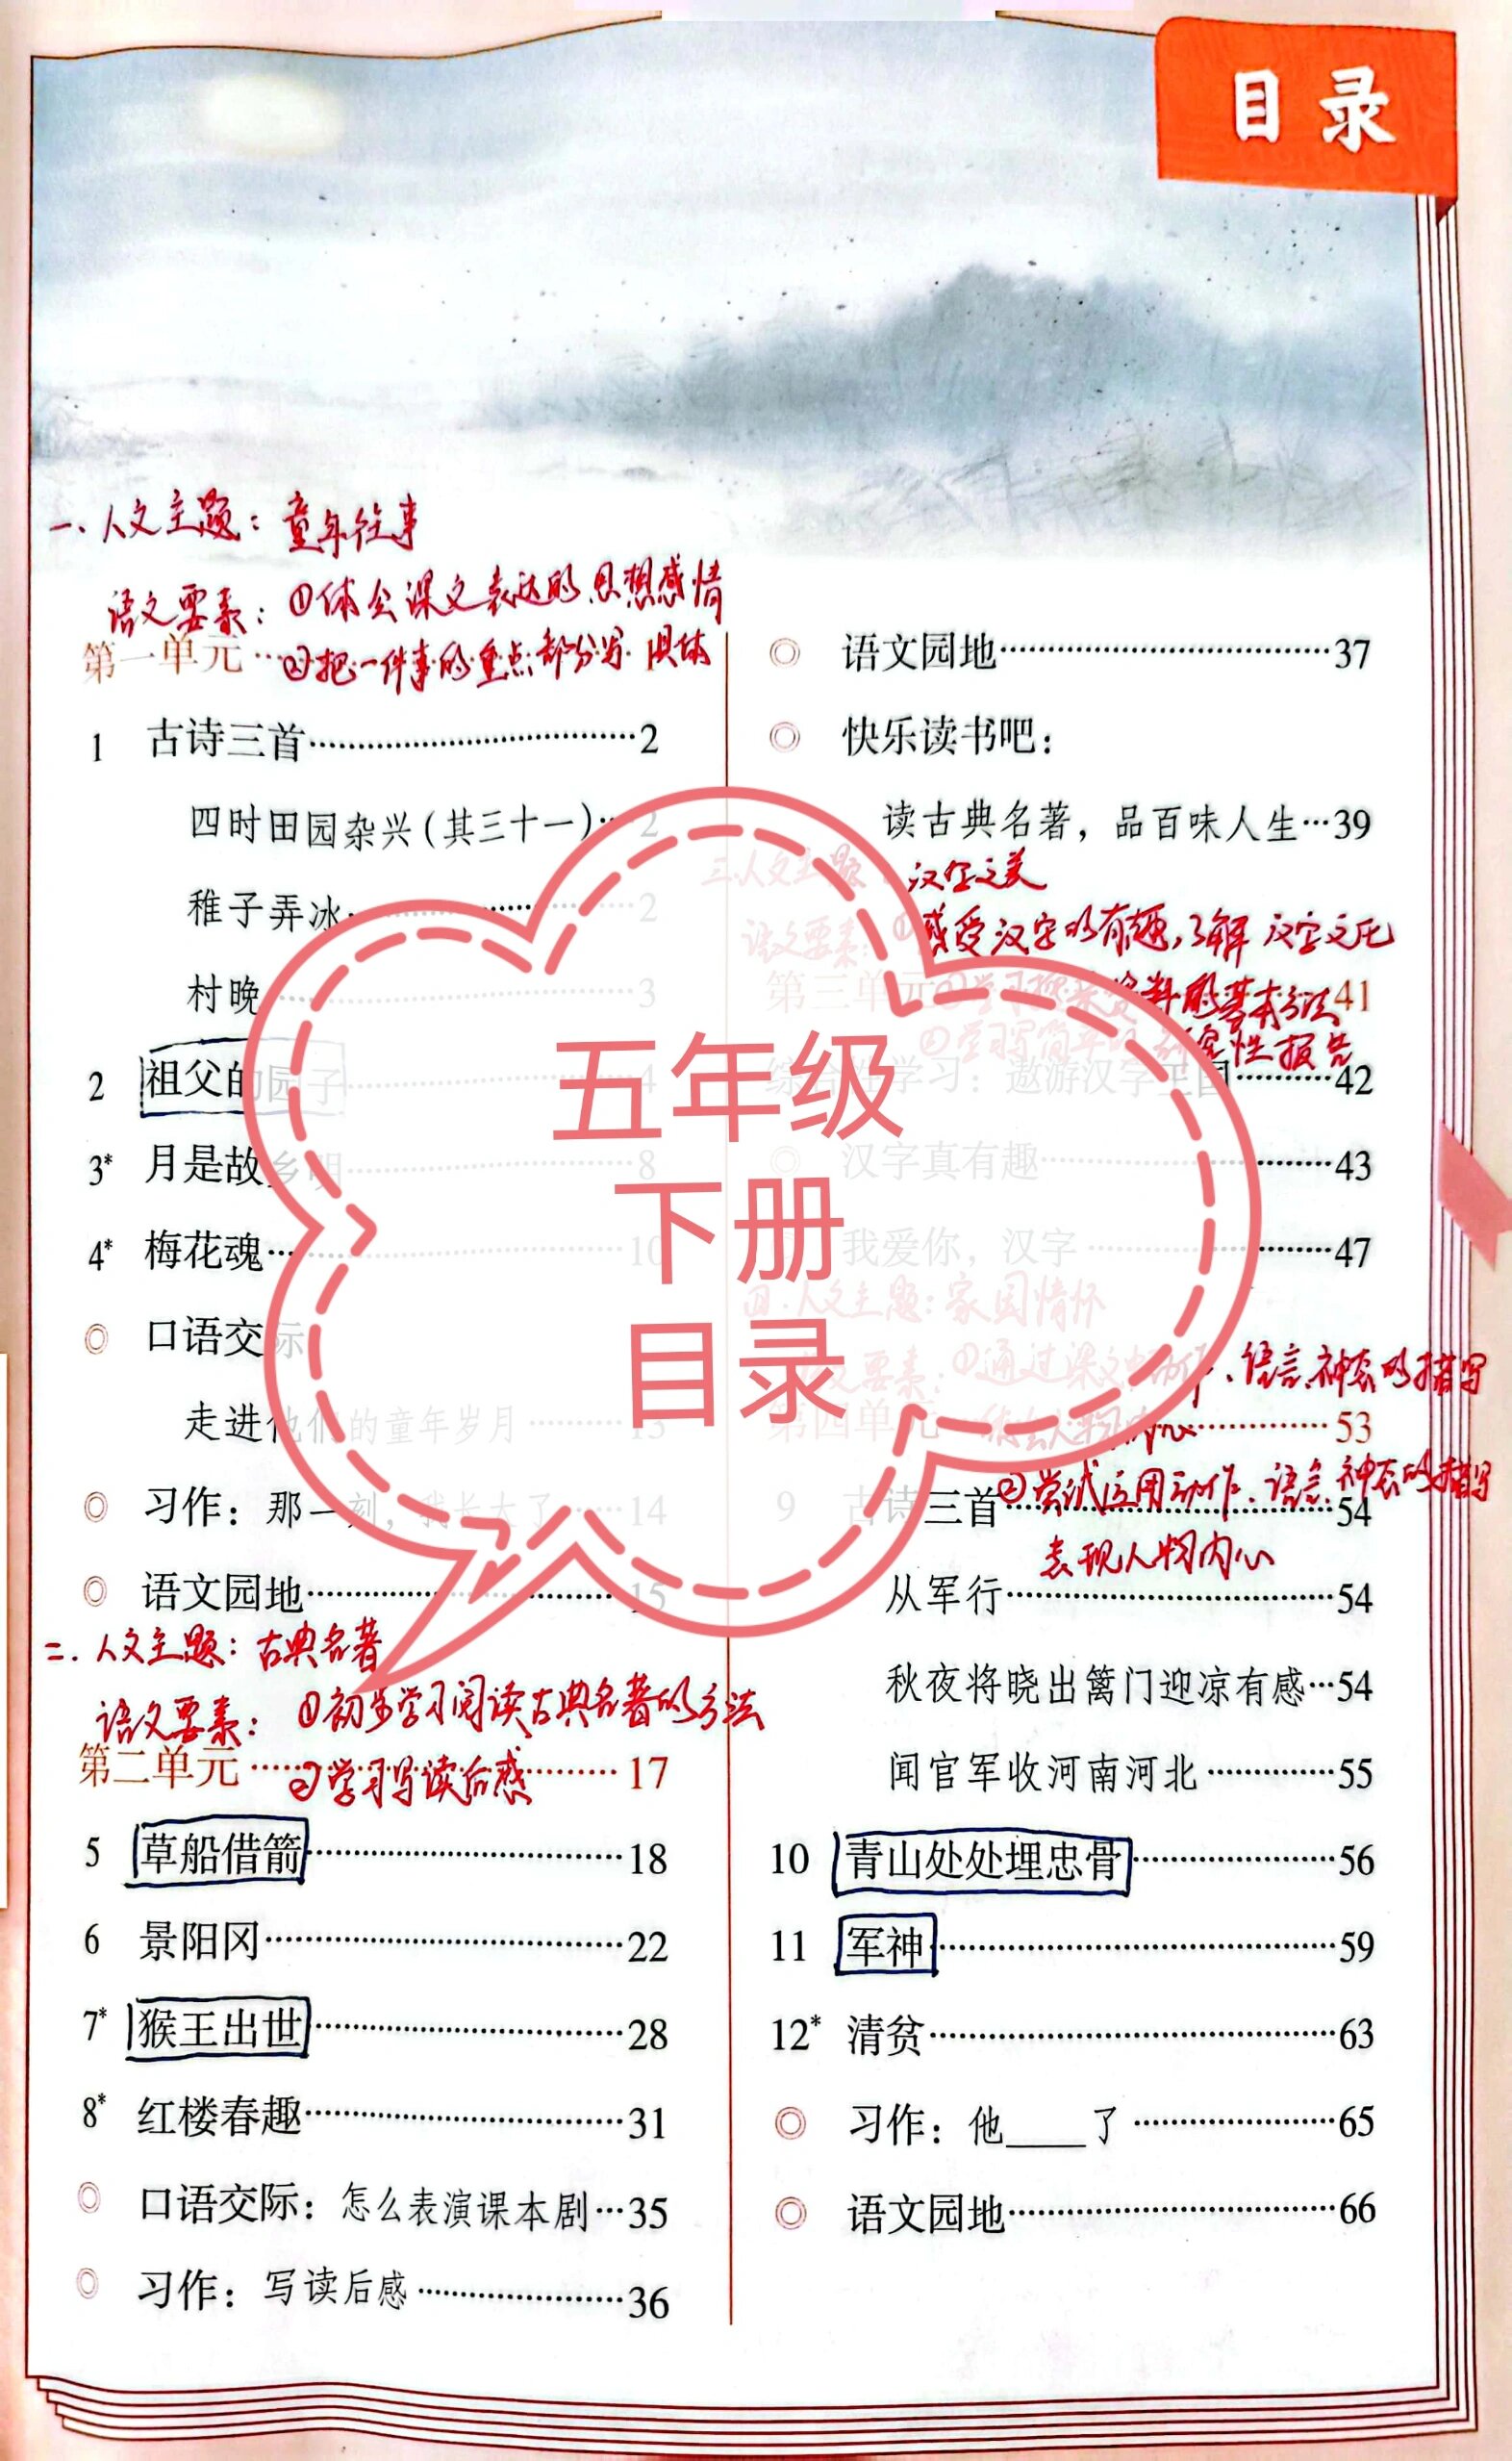 目录
一、人文主题：童年往事
语文要素：①体会课文表达的思想感情
②把一件事的重点部分写具体
第一单元
1 古诗三首……2
四时田园杂兴（其三十一）…2
稚子弄冰……2
村晚……3
2 祖父的园子……4
3* 月是故乡明……8
4* 梅花魂……10
口语交际
走进他们的童年岁月……13
习作：那一刻，我长大了……14
语文园地……15
二、人文主题：古典名著
语文要素：①初步学习阅读古典名著的方法
②学习写读后感
第二单元……17
5 草船借箭……18
6 景阳冈……22
7* 猴王出世……28
8* 红楼春趣……31
口语交际：怎么表演课本剧…35
习作：写读后感……36
语文园地……37
快乐读书吧：
读古典名著，品百味人生…39
三、人文主题 汉字之美
语文要素：①感受汉字的有趣，了解汉字文化
②学习搜集资料的基本方法
第三单元 41
③学习写简单的研究性报告
综合性学习：遨游汉字王国……42
汉字真有趣……43
我爱你，汉字……47
四、人文主题：家国情怀
语文要素：①通过课文中动作、语言、神态的描写
体会人物内心
第四单元……53
②尝试运用动作、语言、神态的描写
9 古诗三首……54
表现人物内心
从军行……54
秋夜将晓出篱门迎凉有感…54
闻官军收河南河北……55
10 青山处处埋忠骨……56
11 军神……59
12* 清贫……63
习作：他____了……65
语文园地……66
五年级
下册
目录